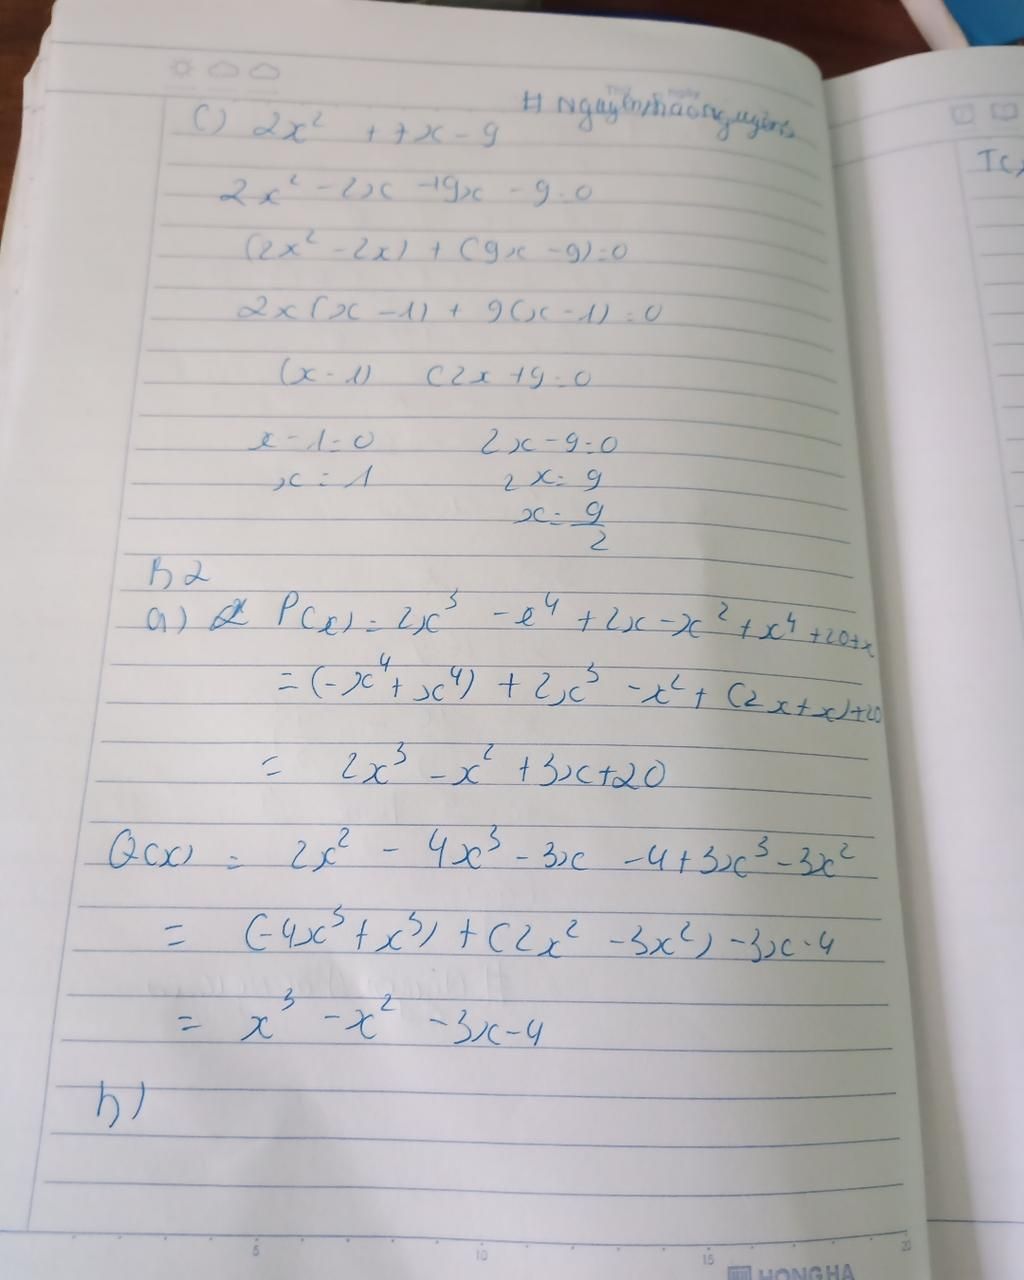 # NguyễnthảoNguyên
c) 2x² + 7x - 9
2x² - 2x + 9x - 9 = 0
(2x² - 2x) + (9x - 9) = 0
2x(x - 1) + 9(x - 1) = 0
(x - 1) (2x + 9 = 0
x - 1 = 0 2x - 9 = 0
x = 1 2x = 9
x = 9/2
B2
a) P(x) = 2x³ - x⁴ + 2x - x² + x⁴ + 20 + x
= (-x⁴ + x⁴) + 2x³ - x² + (2x + x) + 20
= 2x³ - x² + 3x + 20
Q(x) = 2x² - 4x³ - 3x - 4 + 3x³ - 3x²
= (-4x³ + x³) + (2x² - 3x²) - 3x - 4
= x³ - x² - 3x - 4
b)
5 10 15 20
HONG HA